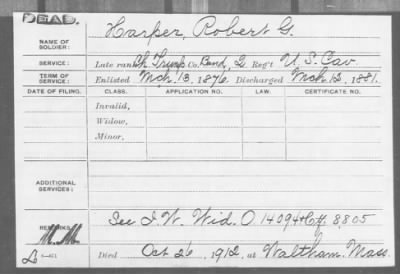 DEAD.
NAME OF SOLDIER: Harper, Robert G.
SERVICE: Late rank Ch Trump, Co. Band, 2 Reg't U.S. Cav.
TERM OF SERVICE: Enlisted Mch. 13, 1876, Discharged Mch. 12, 1881.
DATE OF FILING. CLASS. APPLICATION NO. LAW. CERTIFICATE NO.
Invalid,
Widow,
Minor,
ADDITIONAL SERVICES:
See I. W. Wid. O. 14094 Ctf. 8,805
REMARKS:
Died Oct 26, 1912, at Waltham. Mass.